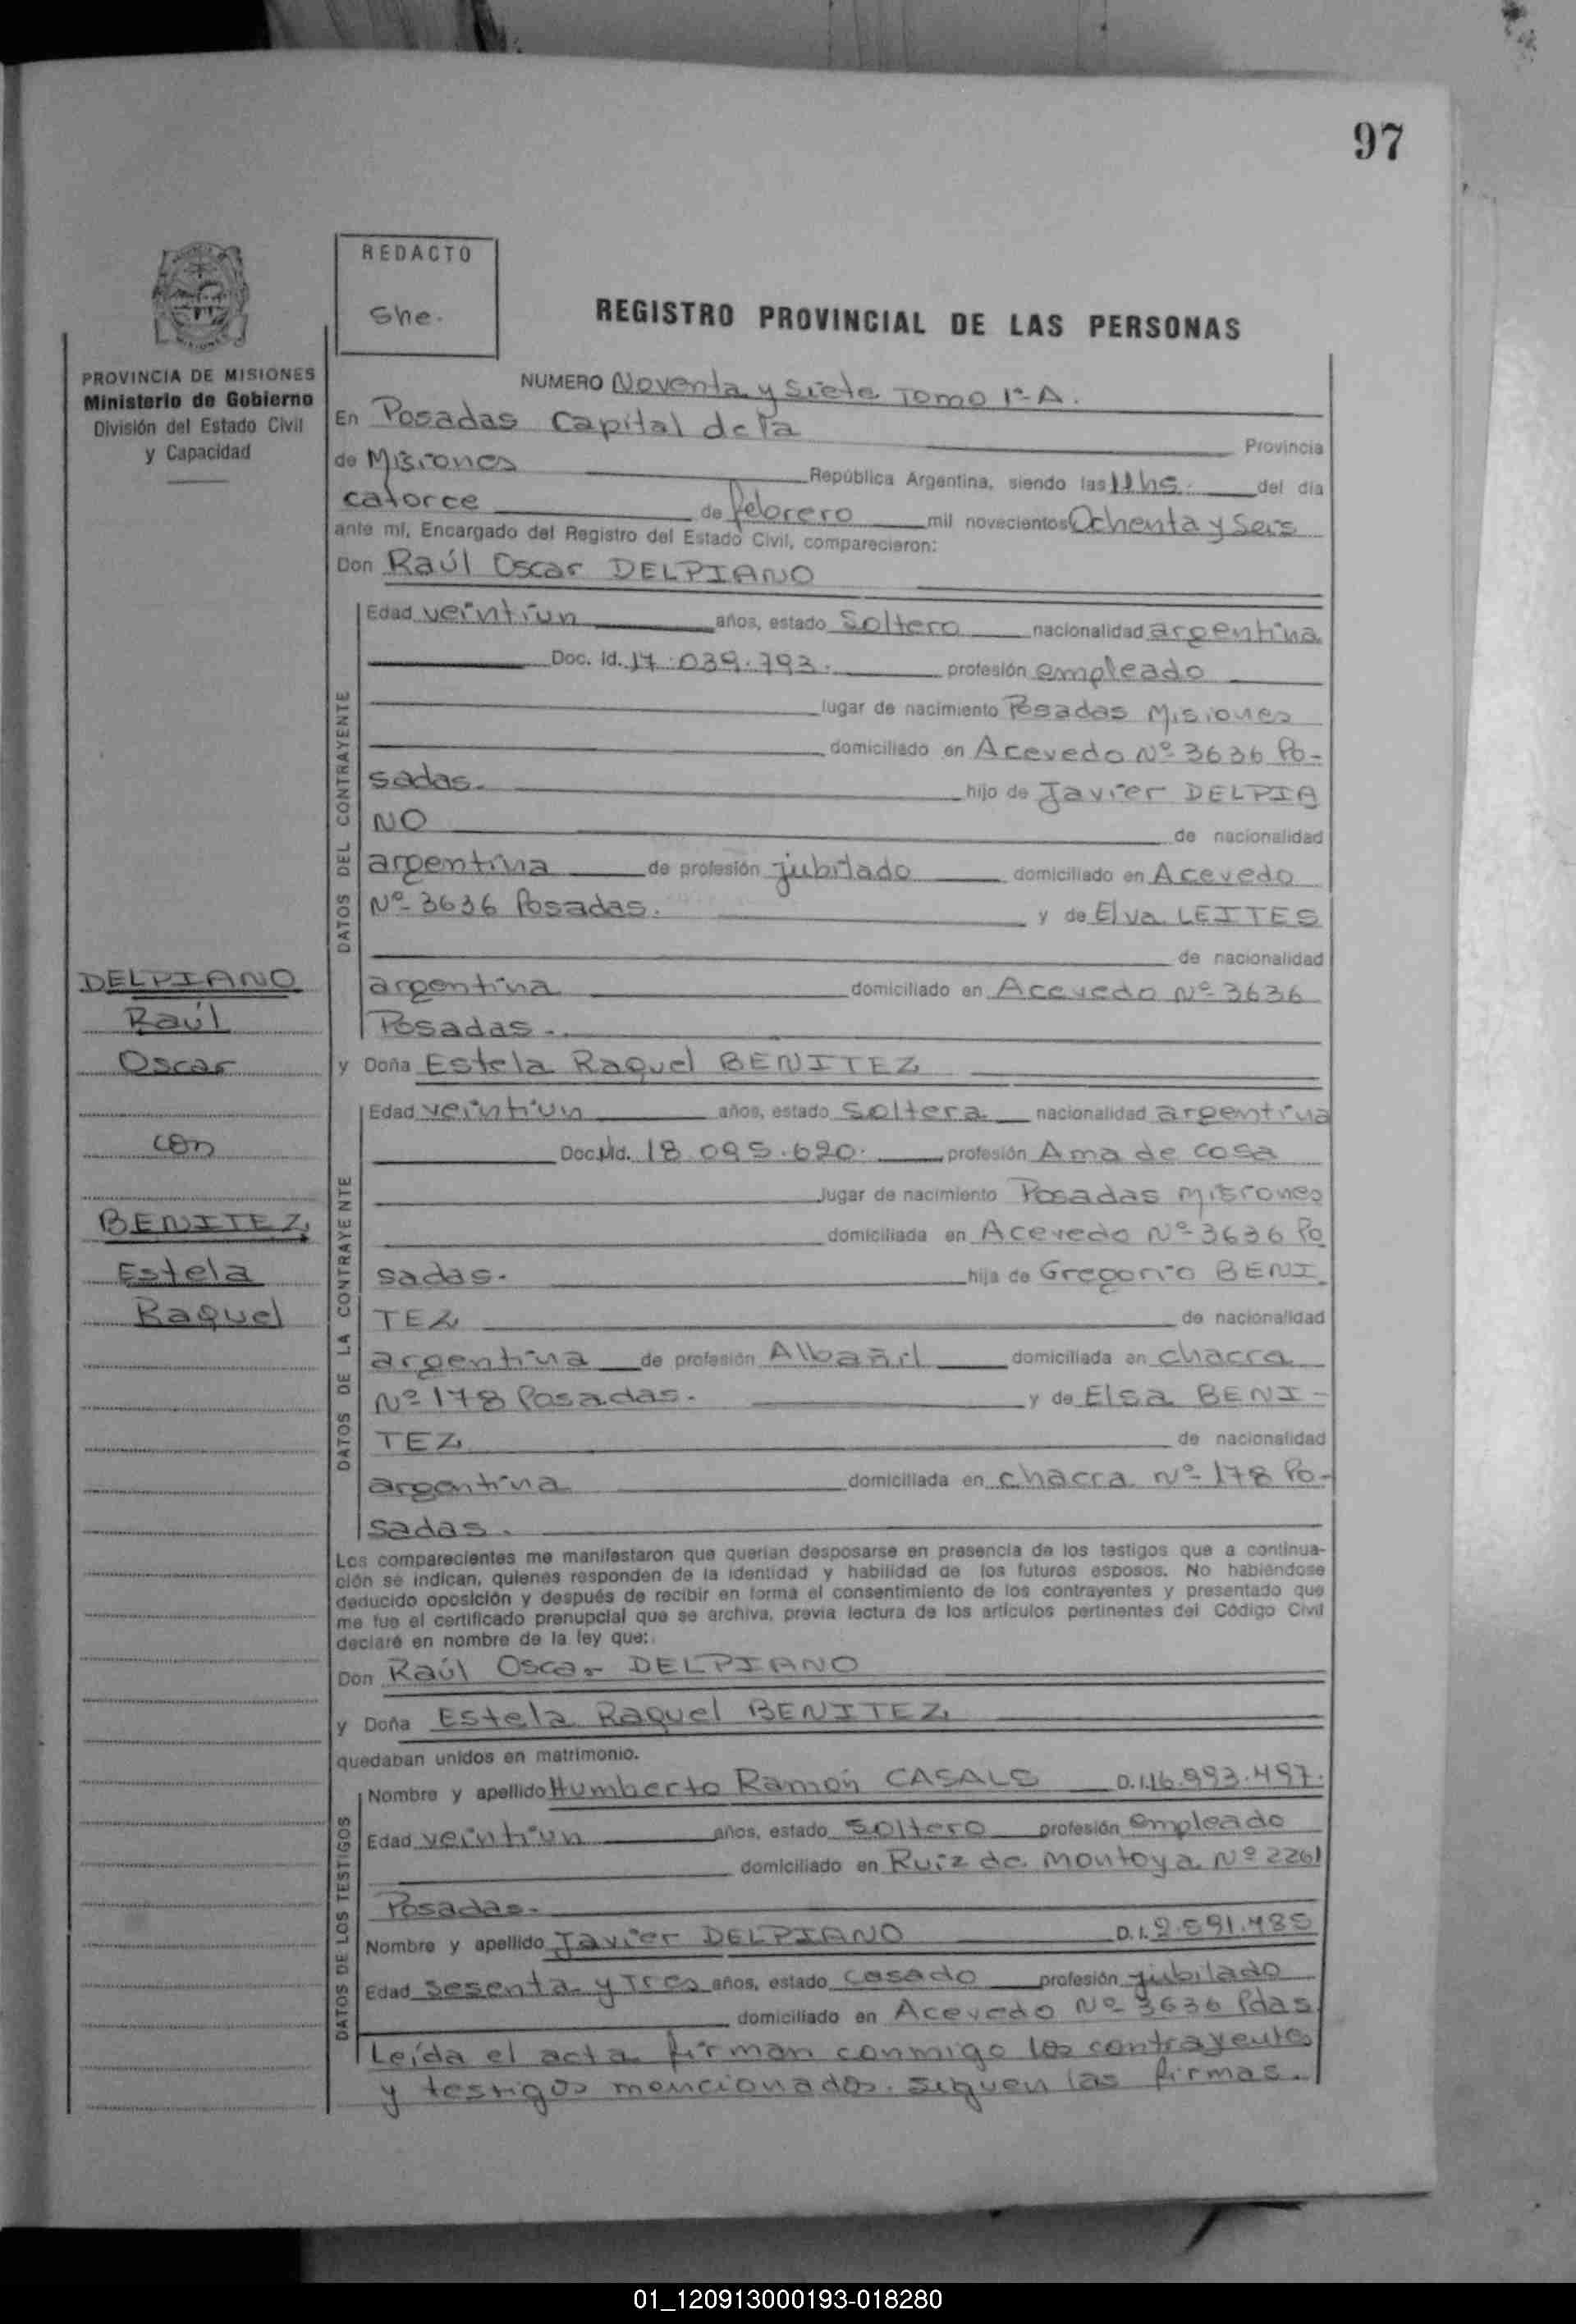 97
REDACTO
She.
REGISTRO PROVINCIAL DE LAS PERSONAS
PROVINCIA DE MISIONES
Ministerio de Gobierno
División del Estado Civil
y Capacidad
NUMERO Noventa y Siete Tomo 1º A.
En Posadas Capital de la Provincia
de Misiones República Argentina, siendo las 11 hs. del día
catorce de febrero mil novecientos Ochenta y Seis
ante mí, Encargado del Registro del Estado Civil, comparecieron:
Don Raúl Oscar DELPIANO
DATOS DEL CONTRAYENTE
Edad veintiun años, estado Soltero nacionalidad argentina
Doc. Id. 17.039.793. profesión empleado
lugar de nacimiento Posadas Misiones
domiciliado en Acevedo Nº 3636 Po-
sadas. hijo de Javier DELPIA
NO de nacionalidad
argentina de profesión jubilado domiciliado en Acevedo
Nº 3636 Posadas. y de Elva LEITES
de nacionalidad
argentina domiciliado en Acevedo Nº 3636
Posadas.
y Doña Estela Raquel BENITEZ
DATOS DE LA CONTRAYENTE
Edad veintiun años, estado Soltera nacionalidad argentina
Doc. Id. 18.095.620. profesión Ama de casa
lugar de nacimiento Posadas Misiones
domiciliada en Acevedo Nº 3636 Po
sadas. hija de Gregorio BENI
TEZ de nacionalidad
argentina de profesión Albañil domiciliada en chacra
Nº 178 Posadas. y de Elsa BENI-
TEZ de nacionalidad
argentina domiciliada en chacra Nº 178 Po-
sadas.
Los comparecientes me manifestaron que querían desposarse en presencia de los testigos que a continua-
ción se indican, quienes responden de la identidad y habilidad de los futuros esposos. No habiéndose
deducido oposición y después de recibir en forma el consentimiento de los contrayentes y presentado que
me fue el certificado prenupcial que se archiva, previa lectura de los artículos pertinentes del Código Civil
declaré en nombre de la ley que:
Don Raúl Oscar DELPIANO
y Doña Estela Raquel BENITEZ
quedaban unidos en matrimonio.
DATOS DE LOS TESTIGOS
Nombre y apellido Humberto Ramón CASALS D.I. 16.993.497.
Edad veintiun años, estado Soltero profesión empleado
domiciliado en Ruiz de Montoya Nº 2261
Posadas.
Nombre y apellido Javier DELPIANO D.I. 2.591.485
Edad sesenta y Tres años, estado casado profesión jubilado
domiciliado en Acevedo Nº 3636 Pdas
Leída el acta firman conmigo los contrayentes
y testigos mencionados. siguen las firmas.
DELPIANO
Raúl
Oscar
con
BENITEZ
Estela
Raquel
01_120913000193-018280